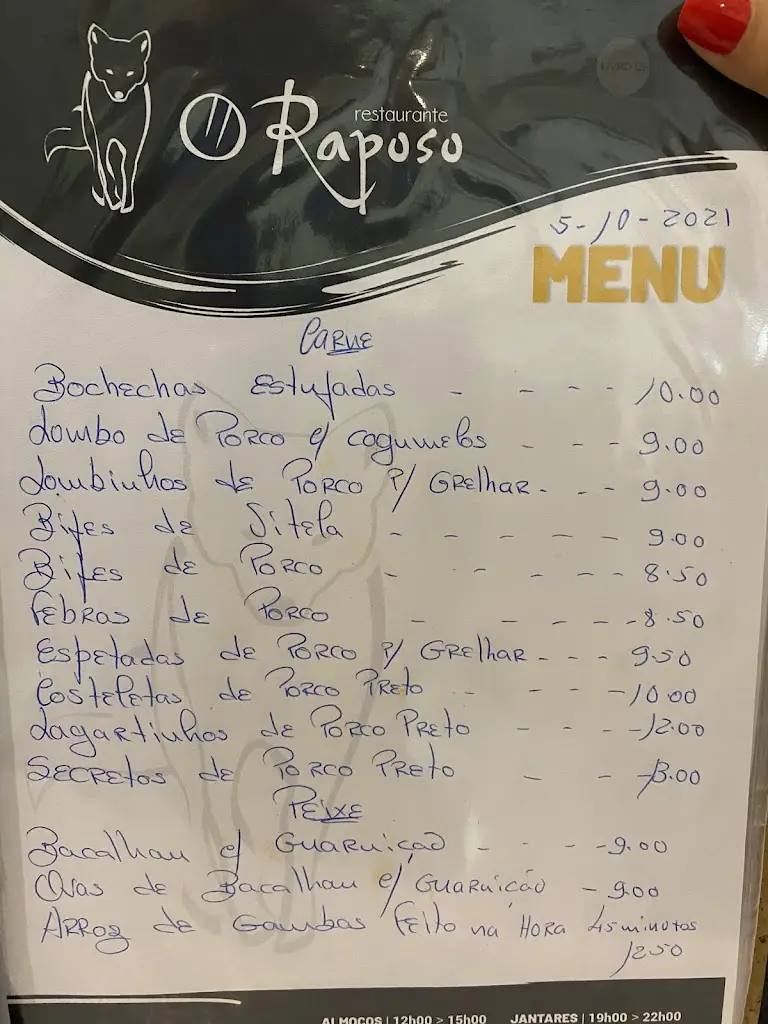 LIVRO DE
restaurante
O Raposo
5-10-2021
MENU
Carne
Bochechas Estufadas - - - - 10.00
Lombo de Porco c/ cogumelos - - - 9.00
Lombinhos de Porco p/ Grelhar - - - 9.00
Bifes de Vitela - - - - - 9.00
Bifes de Porco - - - - 8.50
Febras de Porco - - - - - 8.50
Espetadas de Porco p/ Grelhar - - - 9.50
Costeletas de Porco Preto - - - - 10.00
Lagartinhos de Porco Preto - - - - 12.00
Secretos de Porco Preto - - - 13.00
Peixe
Bacalhau c/ Guarnição - - - - 9.00
Ovas de Bacalhau c/ Guarnição - 9.00
Arroz de Gambas Feito na Hora 45 minutos
12.50
ALMOÇOS | 12h00 > 15h00 JANTARES | 19h00 > 22h00